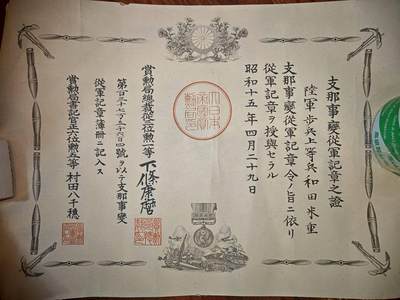 支那事變從軍記章之證
陸軍歩兵上等兵和田米重
支那事變從軍記章令ノ旨ニ依リ
從軍記章ヲ授與セラル
昭和十五年四月二十九日
賞勲局總裁從三位勲一等下條康麿
號ヲ以テ支那事變
從軍記章簿冊ニ記入ス
賞勲局書記官正六位勲五等村田八千穂